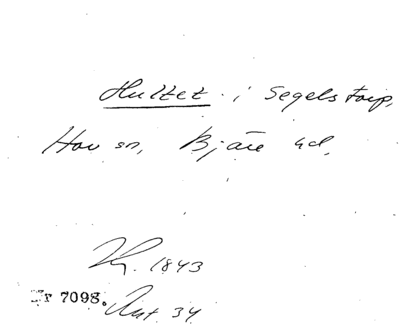 Hultet i Segelstorp,
Hov sn, Bjäre hd,
1843
Nr 7098. Ant 34